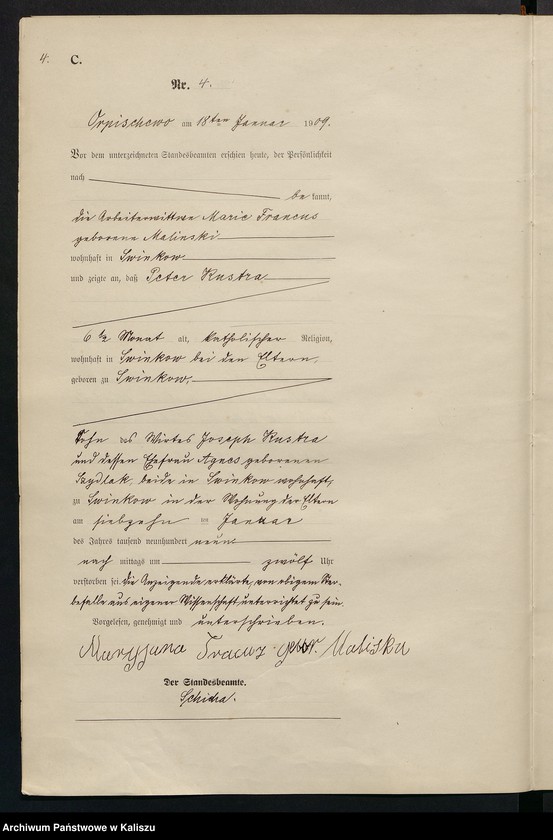 4. C.
Nr. 4.
Orpischewo am 18ten Januar 1909.
Vor dem unterzeichneten Standesbeamten erschien heute, der Persönlichkeit
nach
bekannt,
die Arbeiterwittwe Marie Francus
geborene Malinski
wohnhaft in Swinkow
und zeigte an, daß Peter Kustra
6 1/2 Monat alt, katholischer Religion,
wohnhaft in Swinkow bei den Eltern,
geboren zu Swinkow,
Sohn des Wirtes Joseph Kustra
und dessen Ehefrau Agnes geborenen
Szydlak, beide in Swinkow wohnhaft,
zu Swinkow in der Wohnung der Eltern
am siebzehn ten Januar
des Jahres tausend neunhundert neun
nach mittags um zwölf Uhr
verstorben sei. Die Anzeigende erklärte, von obigem Ster-
befalle aus eigener Wissenschaft unterrichtet zu sein.
Vorgelesen, genehmigt und unterschrieben.
Maryjana
Der Standesbeamte.
Archiwum Państwowe w Kaliszu